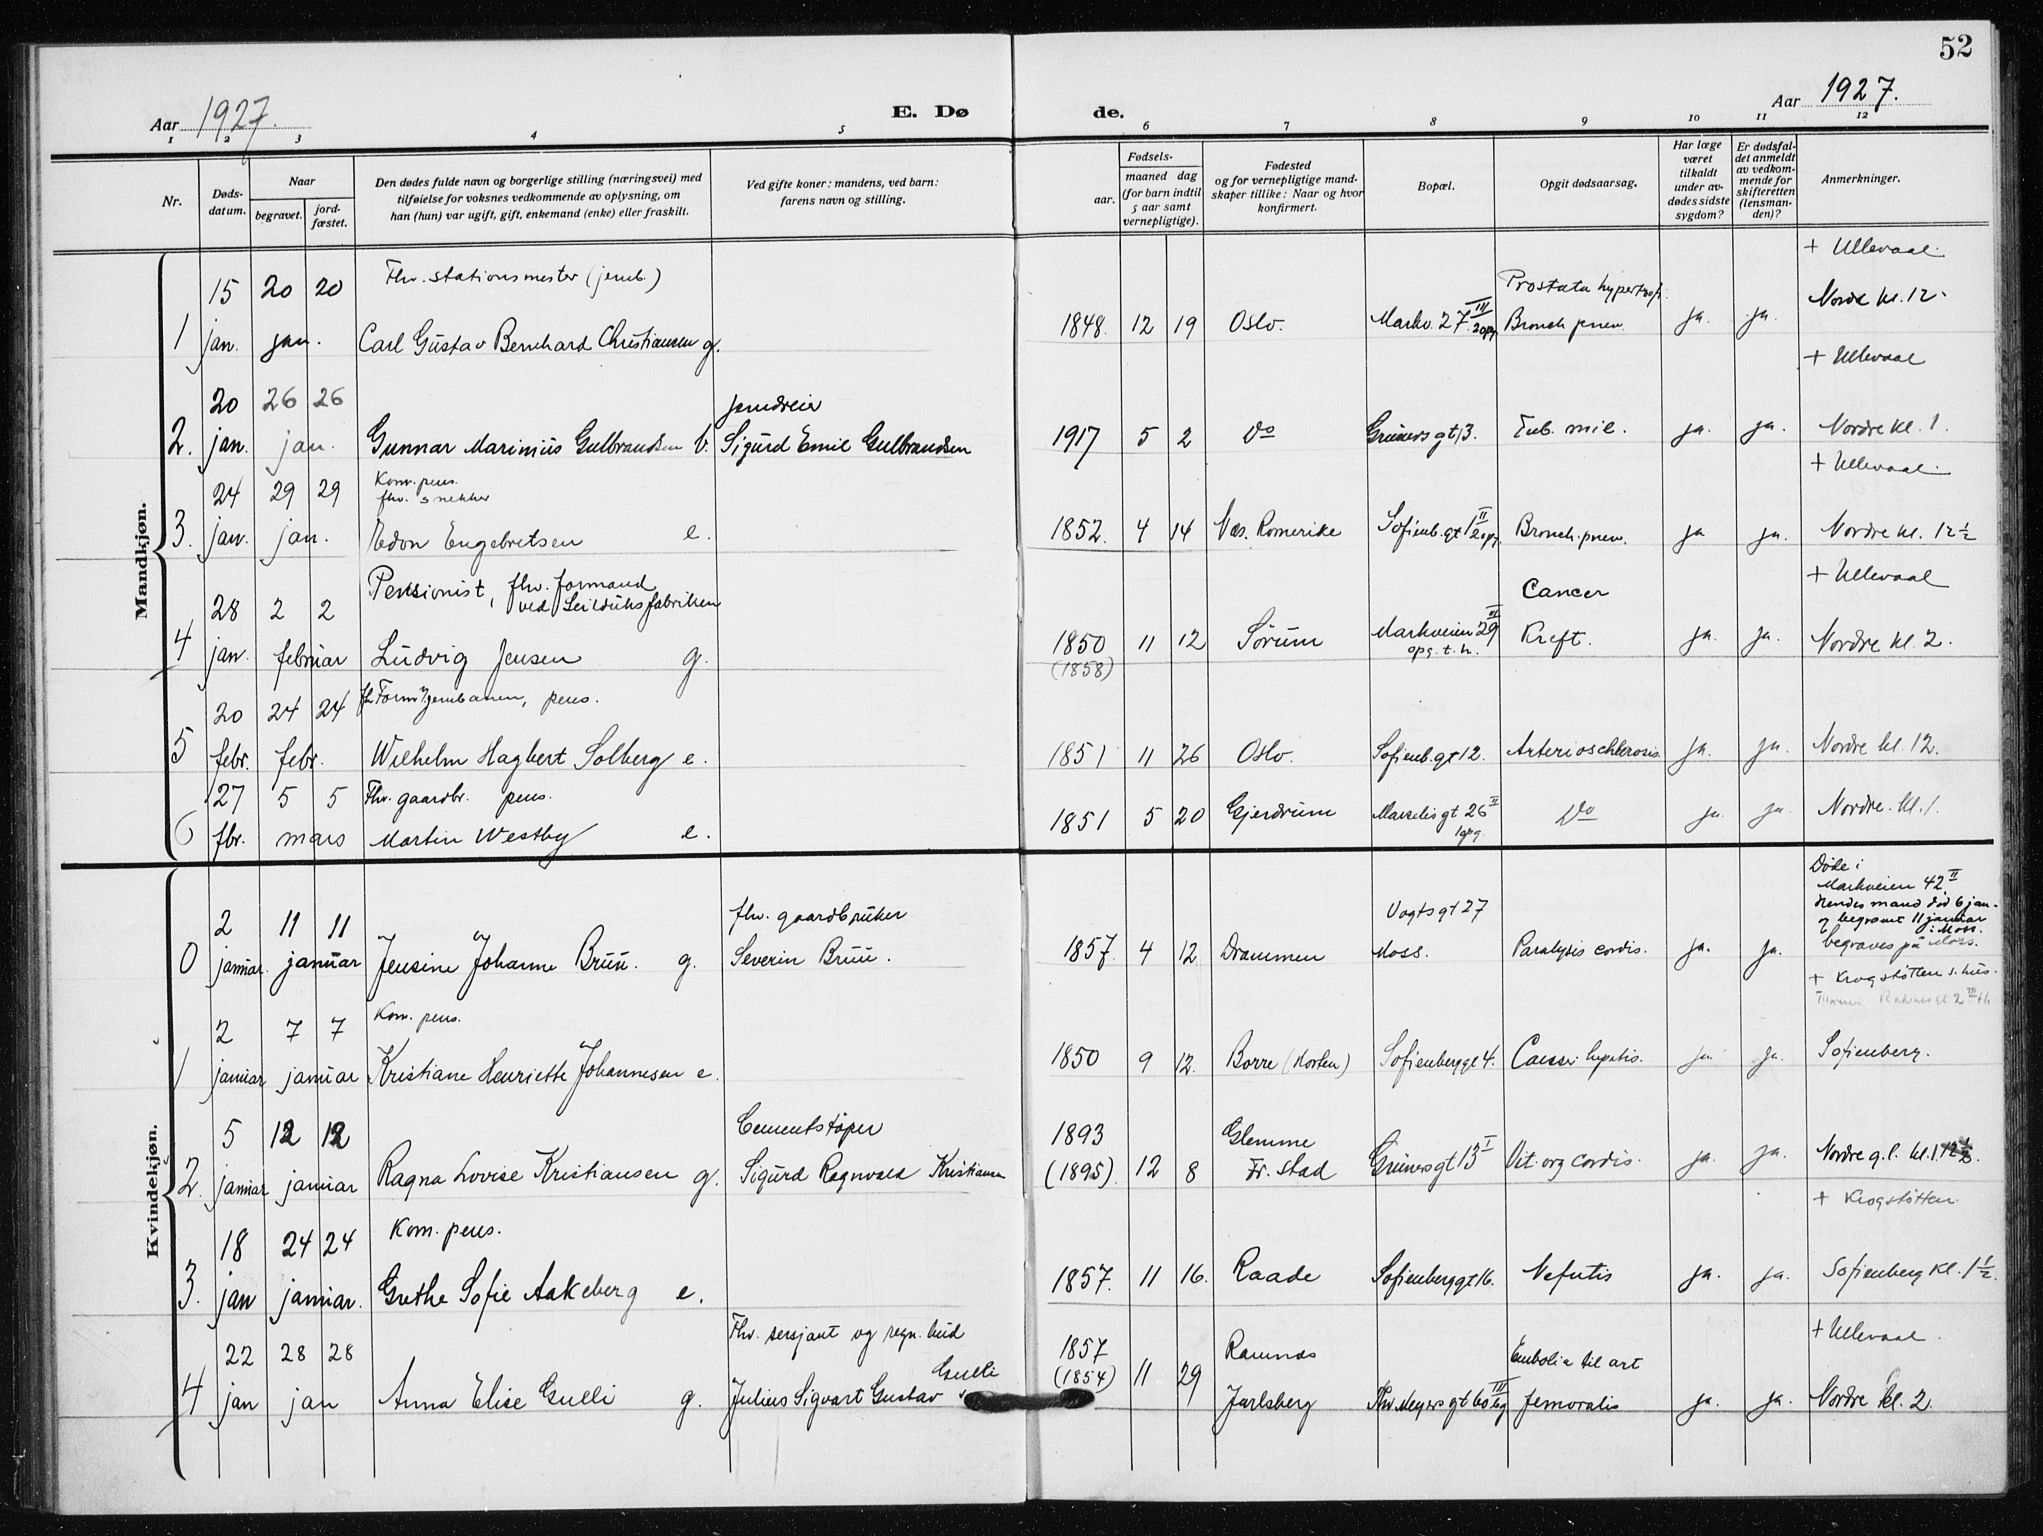 52
Aar 1927.
E. Dø
de.
Aar 1927.
1 2 3 4 5 6 7 8 9 10 11 12
Nr.
Døds-
datum.
Naar
begravet.
jord-
fæstet.
Den dødes fulde navn og borgerlige stilling (næringsvei) med
tilføielse for voksnes vedkommende av oplysning, om
han (hun) var ugift, gift, enkemand (enke) eller fraskilt.
Ved gifte koner: mandens, ved barn:
farens navn og stilling.
Fødsels-
aar.
maaned dag
(for barn indtil
5 aar samt
vernepligtige).
Fødested
og for vernepligtige mand-
skaper tillike: Naar og hvor
konfirmert.
Bopæl.
Opgit dødsaarsag.
Har læge
været
tilkaldt
under av-
dødes sidste
sygdom?
Er dødsfal-
det anmeldt
av vedkom-
mende for
skifteretten
(lensman-
den)?
Anmerkninger.
Mandkjøn.
+ Ullevaal.
15 20 20 Fhv. stationsmester (jernb.) Prostata hypertrof. Nordre kl. 12.
1 jan. jan. Carl Gustav Bernhard Christiansen g. 1848. 12 19 Oslo. Markv. 27 III 2opg Bronch pnev. ja. ja.
+ Ullevaal
20 26 26 jerndreier
2. jan. jan. Gunnar Marinius Gulbrandsen b. Sigurd Emil Gulbrandsen 1917 5 2 Do Grünersgt 13. Tub. mil. ja. ja. Nordre kl. 1.
+ Ullevaal.
24 29 29 Kom. pens.
fhv. snekker
3. jan. jan. Edon Engebretsen e. 1852. 4 14 Næs. Romerike Sofienb.gt 1 II 2opg Bronch. pnev. ja ja. Nordre kl. 12 1/2
+ Ullevaal
28 2 2 Pensionist, fhv. formand
ved Seildugsfabriken
Cancer
4 jan. februar Ludvig Jensen g. 1850 11 12 Sørum Markveien 29 III Kreft. ja. ja. Nordre kl. 2.
(1858) opg. t. h.
20 24 24 fh Form. v/jernbanen, pens.
5 febr. febr. Wilhelm Hagbert Solberg e. 1851 11 26 Oslo. Sofienb.gt 12. Arterioschlerosis. ja. ja. Nordre kl. 12.
27 5 5 Fhv. gaardbr. pens.
6 fbr. mars Martin Westby e. 1851 5 20 Gjerdrum Marselisgt 26 II 1opg. Do ja. ja. Nordre. kl. 1.
Kvindekjøn.
Døde i
Markveien 42 II
Hendes mand død 6 jan.
og begravet 11 januar
i Moss.
begraves på Moss.
2 11 11 fhv. gaardbruker Vogtsgt 27
0 januar. januar Jensine Johanne Bruu. g. Severin Bruu. 1857. 4 12 Drammen Moss. Paralysis cordis. ja. ja.
+ Krogstøtten s. hus.
2 7 7 Kom. pens.
1 januar januar Kristiane Henriette Johannesen e. 1850 9 12. Borre (Horten) Sofienberggt 4. Cancer hepatis. ja. ja. Sofienberg.
5 12 12 Cementstøper 1893 Glemme
2. januar januar Ragna Lovise Kristiansen g. Sigurd Ragnvald Kristiansen (1895). 12 8 Fr. stad Grünersgt 13 I Vit. org cordis. ja. ja. Nordre g. l. kl. 1
+ Krogstøtten
18 24 24 Kom. pens.
3. jan januar. Grethe Sofie Aakeberg e. 1857. 11 16. Raade Sofienberggt 16. Nefritis ja. ja. Sofienberg kl. 1 1/2.
+ Ullevaal.
22 28 28 Fhv. sersjant og regn. bud 1857 Ramnæs Embolia til art
Gulli
4 jan jan Anna Elise Gulli g. Julius Sigvart Gustav (1854) 11 29 Jarlsberg Thv Meyersgt 60 III femoralis ja. ja. Nordre kl. 2.